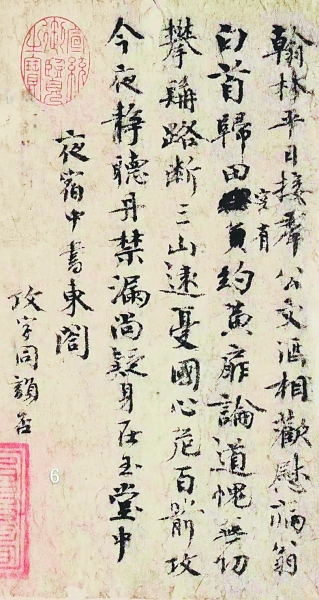 翰林平日接羣公文酒相歡慰病翁
白首歸田空有約黃扉論道愧無功
攀髯路斷三山遠憂國心危百箭攻
今夜靜聽丹禁漏尚疑身在玉堂中
夜宿中書東閤
攻字同韻否
宣統御覽之寶
6